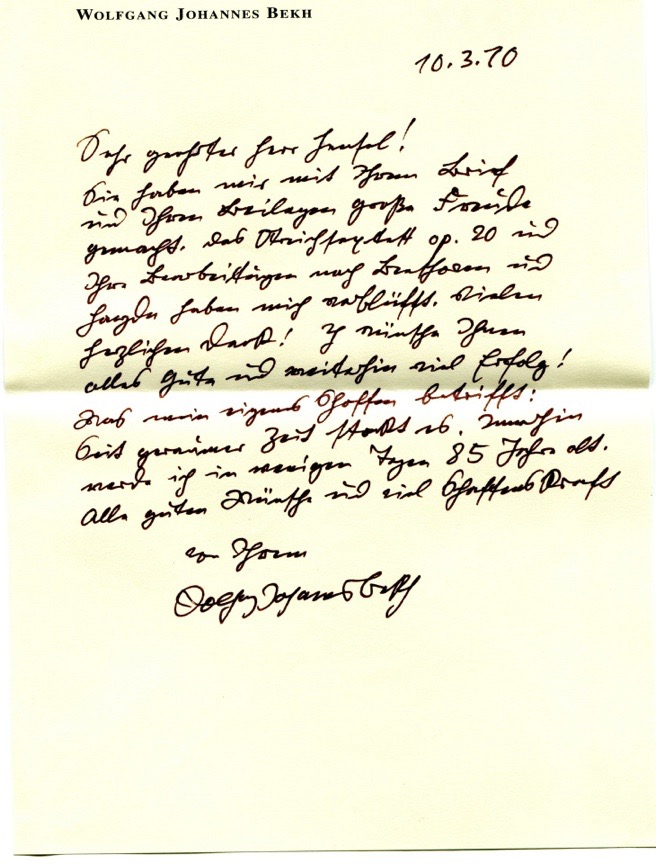 WOLFGANG JOHANNES BEKH
10.3.10
Sehr geehrter Herr Hensel!
Sie haben mir mit Ihrem Brief
und Ihren Beilagen große Freude
gemacht. Das Streichsextett op. 20 und
Ihre Bearbeitungen nach Beethoven und
Haydn haben mich verblüfft. Vielen
herzlichen Dank! Ich wünsche Ihnen
alles Gute und weiterhin viel Erfolg!
Was mein eigenes Schaffen betrifft:
Seit geraumer Zeit stockt es. Immerhin
werde ich in wenigen Tagen 85 Jahre alt.
Alle guten Wünsche und viel Schaffenskraft
von Ihrem
Wolfgang Johannes Bekh